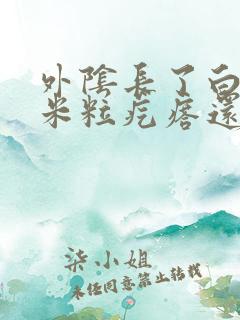 外陰長了白
米粒疙瘩還
柒小姐
未经同意禁止转载